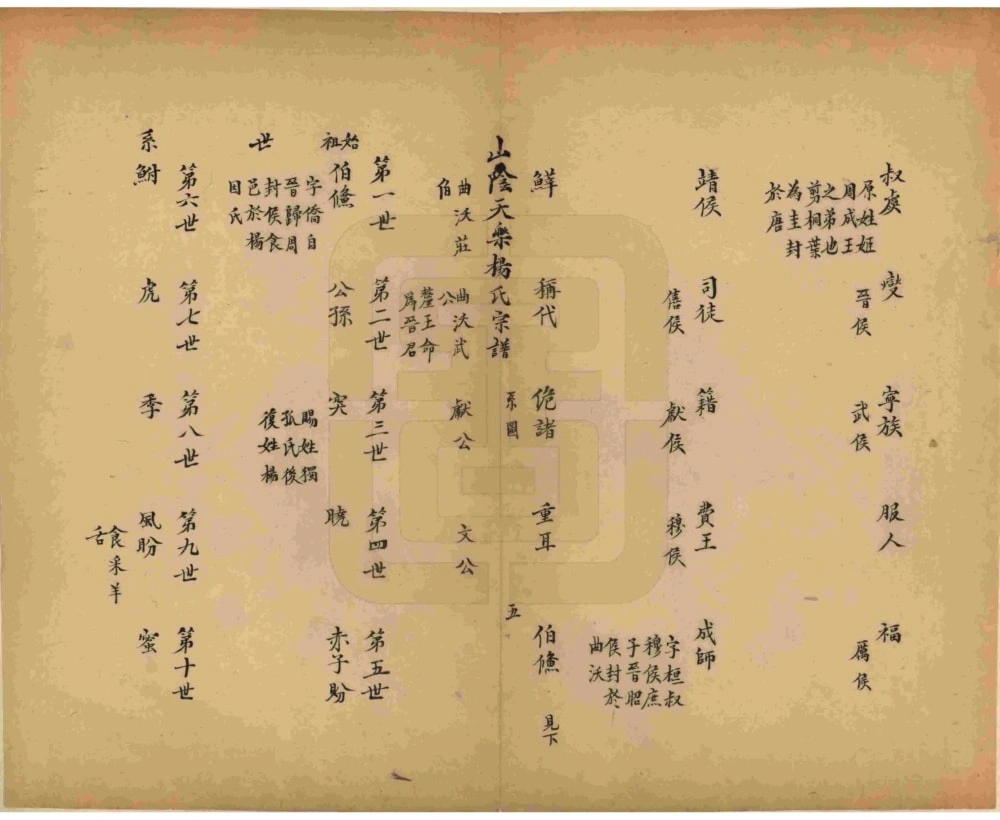 叔虞
原姓姬
周成王
之弟也
剪桐葉
為圭封
於唐
燮
晉侯
寧族
武侯
服人
福
厲侯
靖侯
司徒
僖侯
籍
獻侯
費王
穆侯
成師
字桓叔
穆侯庶
子晉昭
侯封於
曲沃
鱓
曲沃莊
伯
稱代
曲沃武
公
釐王命
爲晉君
佹諸
獻公
重耳
文公
伯僑
見下
山陰天樂楊氏宗譜
系圖
五
第一世
始祖
伯僑
字僑自
晉歸周
封侯食
邑於楊
因氏
第二世
公孫
第三世
突
賜姓獨
孤氏後
復姓楊
第四世
曉
第五世
赤子盼
世系
第六世
鮒
第七世
虎
第八世
季
第九世
風盼
食采羊
舌
第十世
蜜